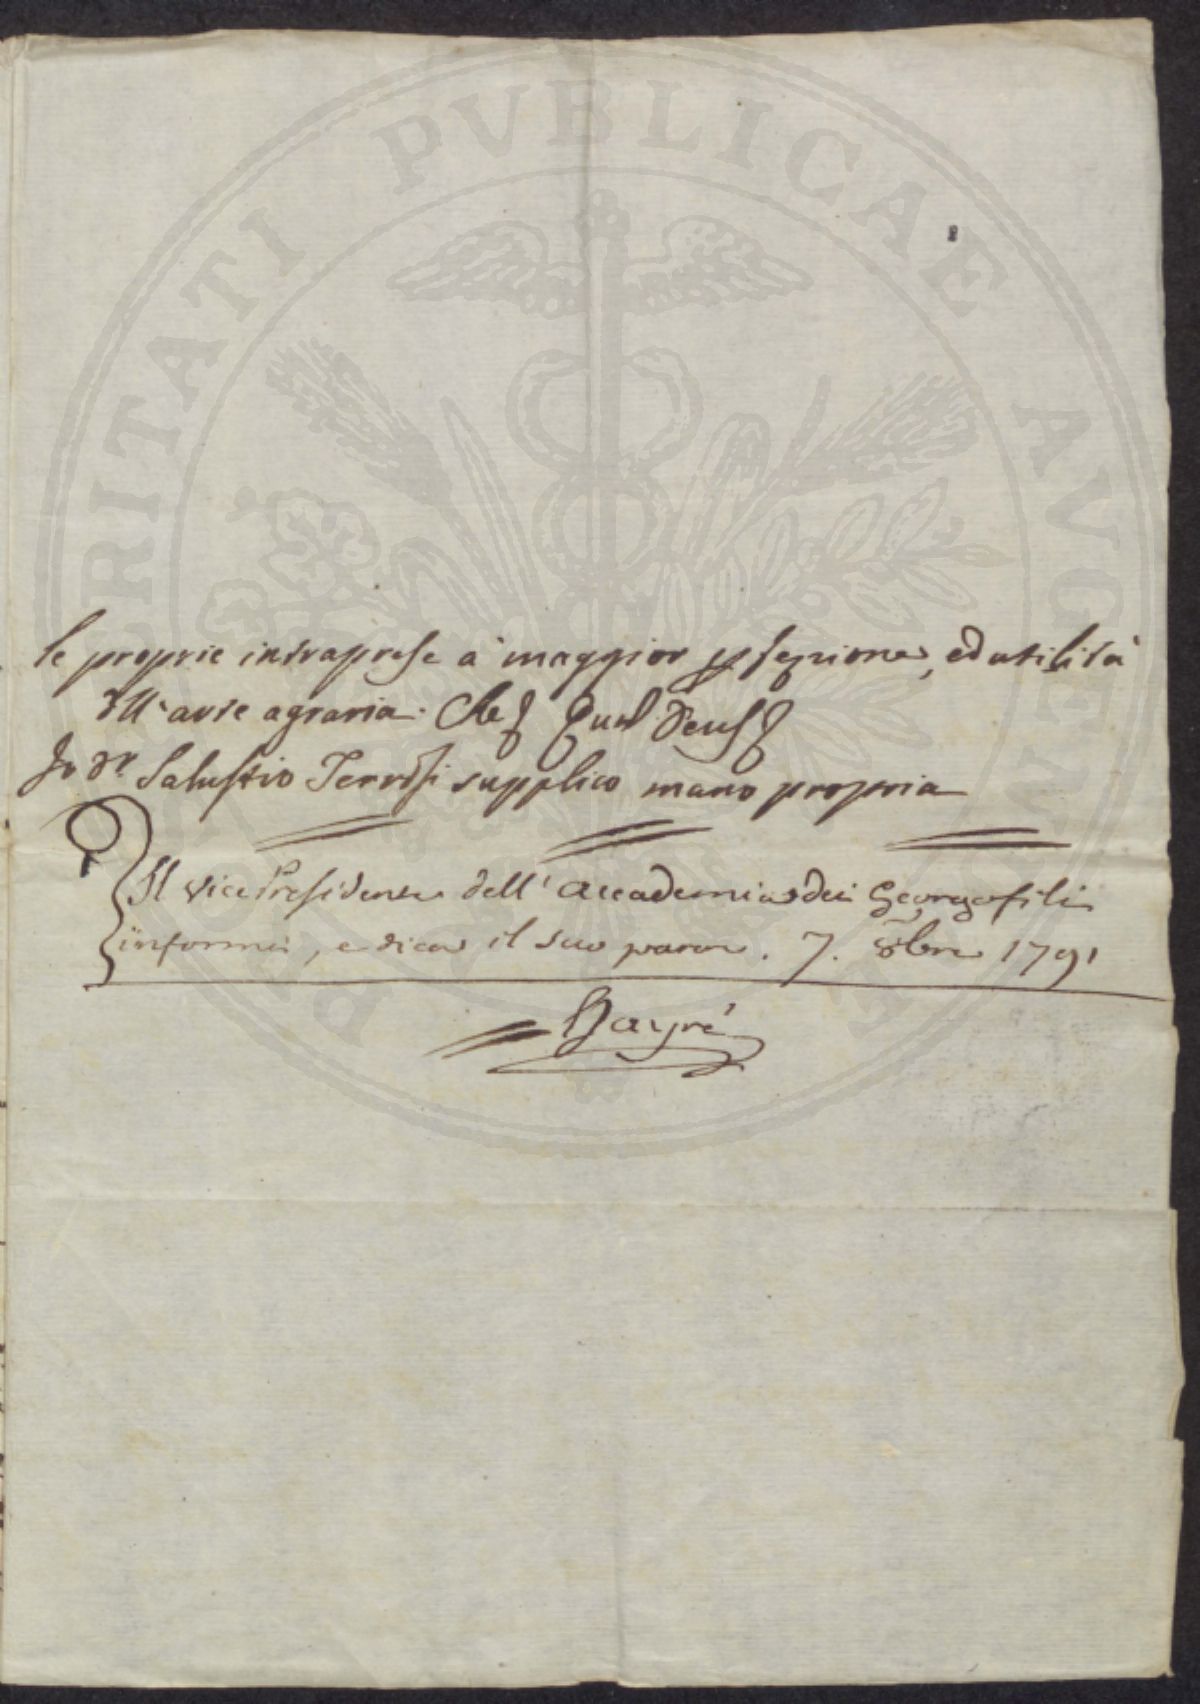 PROSPERITATI PVBLICAE AVGENDAE
le proprie intraprese à maggior pfezione, ed utilità
dll'arte agraria. Che
Io Dr Salustio Terrosi supplico mano propria
Il Vice Presidente dell' Accademia dei Georgofili
informi, e dica il suo parere. 7. 8bre 1791